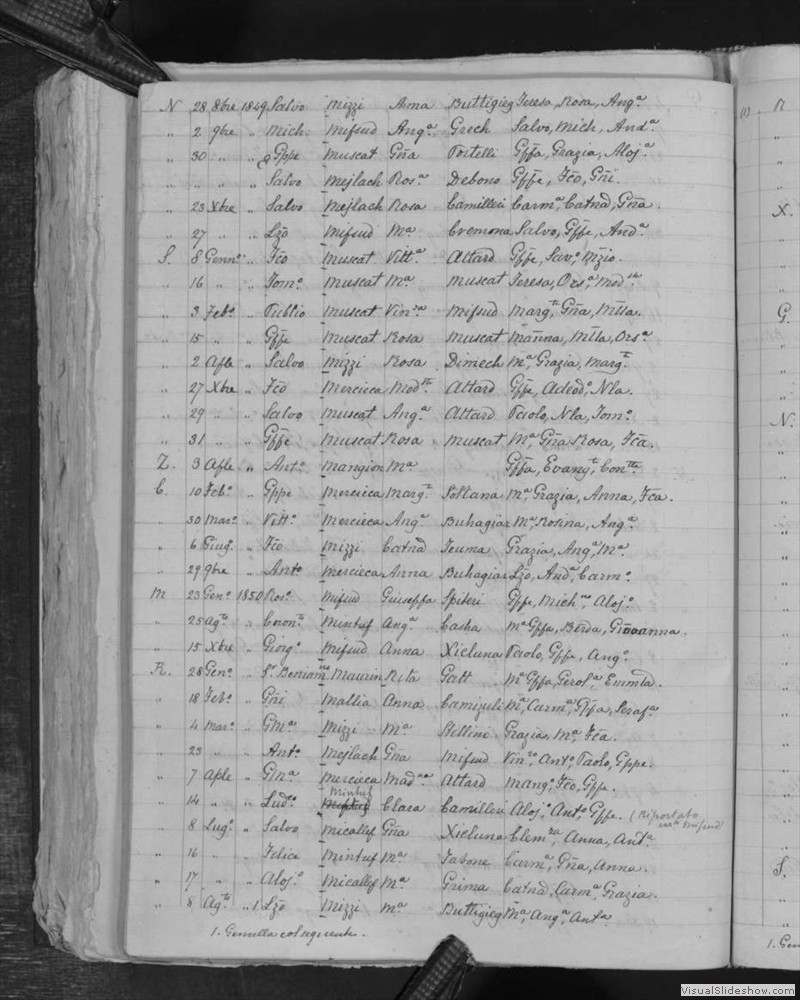 N 28 8bre 1849 Salvo Mizzi Anna Buttigieg Teresa, Rosa, Angª
" 2 9bre " Mich: Mifsud Angª Grech Salvo, Mich, Andª
" 30 " " Gppe Muscat Gña Portelli Gffa, Grazia, Alojª
" " " " Salvo Mejlach Rosª Debono Gffe, Fco, Gñi
" 23 Xbre " Salvo Mejlach Rosa Camilleri Carmª, Catnã, Gña.
" 27 " " Lzõ Mifsud Mª Cremona Salvo, Gffe, Andª
S. 8 Gennº " Fco Muscat Vittª Attard Gffe, Savº, Mzio.
" 16 " " Tomº Muscat Mª Muscat Teresa, Orsª, Modtª
" 3 Febº " Publio Muscat Vinzª Mifsud Margta, Gña, Mtla.
" 15 " " Gffe Muscat Rosa Muscat Mãnna, Mtla, Orsª
" 2 Aple " Salvo Mizzi Rosa Dimech Mª, Grazia, Margta
" 27 Xbre " Fco Mercieca Modta Attard Gffe, Adeodº, Nla.
" 29 " " Salvo Muscat Angª Attard Paolo, Nla, Tomº
" 31 " " Gffe Muscat Rosa Muscat Mª, Gña Rosa, Fca.
Z. 3 Aple " Antº Mangion Mª Gffa, Evangta, Contta
C. 10 Febº " Gppe Mercieca Margta Soltana Mª, Grazia, Anna, Fca.
" 30 Marº " Vittº Mercieca Angª Buhagiar Mª, Rosina, Angª
" 6 Giugº " Fco Mizzi Catnã Zeuma Grazia, Angª, Mª
" 29 9bre " Antº Mercieca Anna Buhagiar Lzõ, Andª, Carmº
M 23 Genº 1850 Rosº Mifsud Giuseppa Spiteri Gffe, Mich, Alojº
" 25 Agto " Mintuf Angª Casha Mª Gffa, Giovanna.
" 15 Xbre " Giorgº Mifsud Anna Xicluna Paolo, Gffe, Angº
R. 28 Genº " Sr Beniamno Maurin Rita Gatt Mª Gffa, Gerolª, Emmla.
" 18 Febº " Gñi Mallia Anna Camizuli Mª, Carmª, Gffa, Serafª
" 4 Marº " Gmª Mizzi Mª Stellini Grazia, Mª, Fca.
" 23 " " Antº Mejlach Gña Mifsud Vinzo, Antº, Paolo, Gppe.
" 7 Aple " Mercieca Madna Attard Mangº, Fco, Gffe.
" 14 " " Ludco Mintuf Clara Camilleri Alojº, Antº, Gffe. (Riportato Mifsud
" 8 Lugº " Salvo Micallef Gña Xicluna Clemza, Anna, Antª
" 16 " " Felice Mintuf Mª Tabone Carmª, Gña, Anna.
" 17 " " Alojº Micallef Mª Grima Catnã, Carmª, Grazia.
" 8 Agto " 1 Lzõ Mizzi Mª Buttigieg Mª, Angª, Antª
1. Gemella col seguente.
(1)
R
X.
G.
N.
S.
1. Gem
VisualSlideshow.com